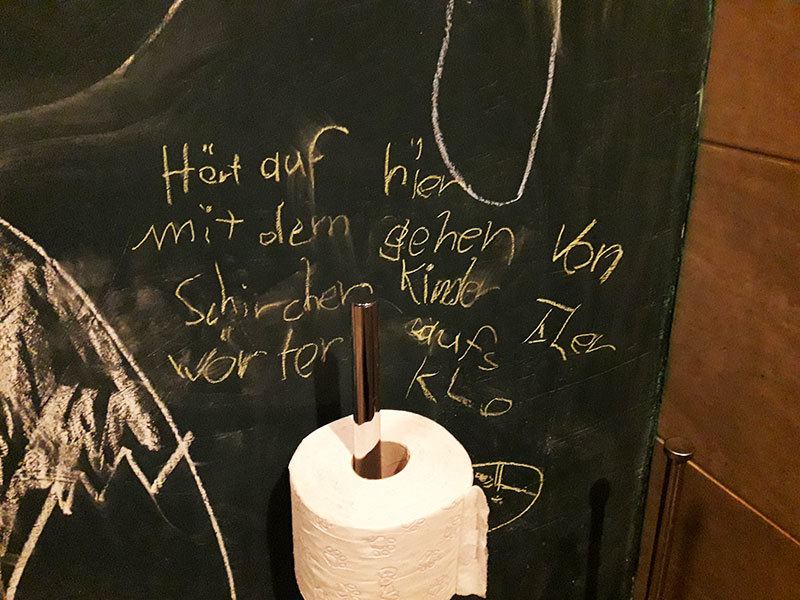 Hört auf
mit dem
Schirchen
wörter
hier
gehen
Kinder
aufs
KLo
Von